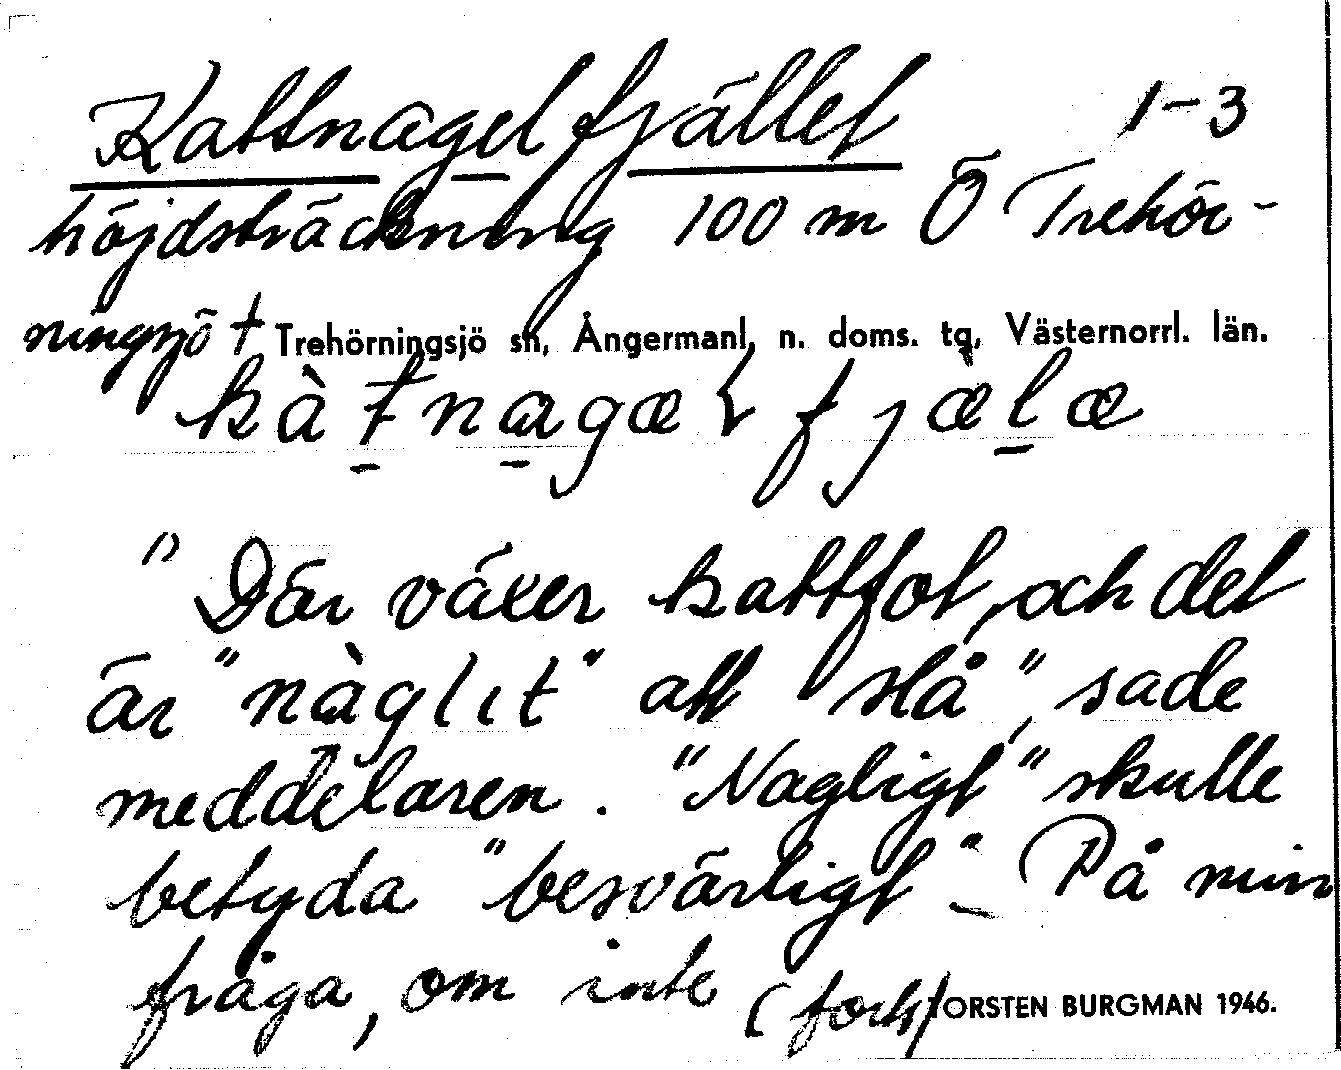 Kattnagelfjället 1-3
höjdsträckning 100 m Ö Trehör-
ningsjö † Trehörningsjö sn, Ångermanl. n. doms. tg, Västernorrl. län.
"Där växer kattfot, och det
är "nàglit" att slå", sade
meddelaren. "Nagligt" skulle
betyda "besvärligt". På min
fråga, om inte (forts)
TORSTEN BURGMAN 1946.